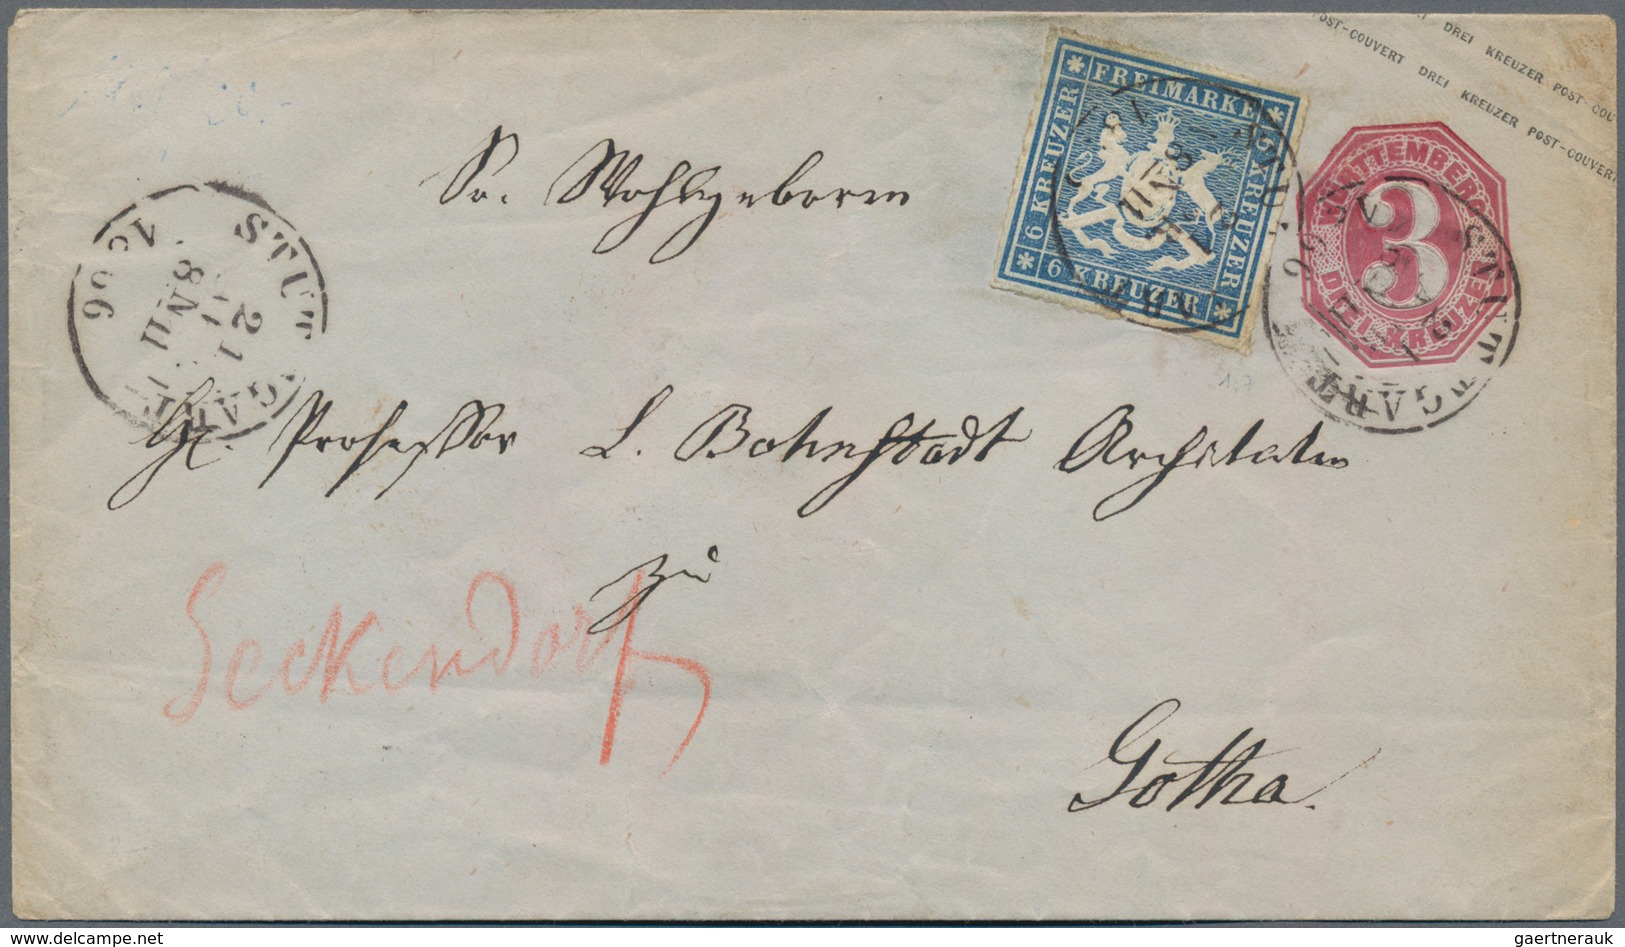 DREI KREUZER POST-COU
POST-COUVERT DREI KREUZER POST-COUVERT
FREIMARKE
6 KREUZER
6 KREUZER
6 KREUZER
WÜRTTEMBERG
3
DREI KREUZER
STUTTGART
21
8 N 11
1866
STUTTGART
Sr. Wohlgeboren
Hr. Professor L. Bohnstadt Architekten
zu
Seckendorf
Gotha.
delcampe.net
gaertnerauk